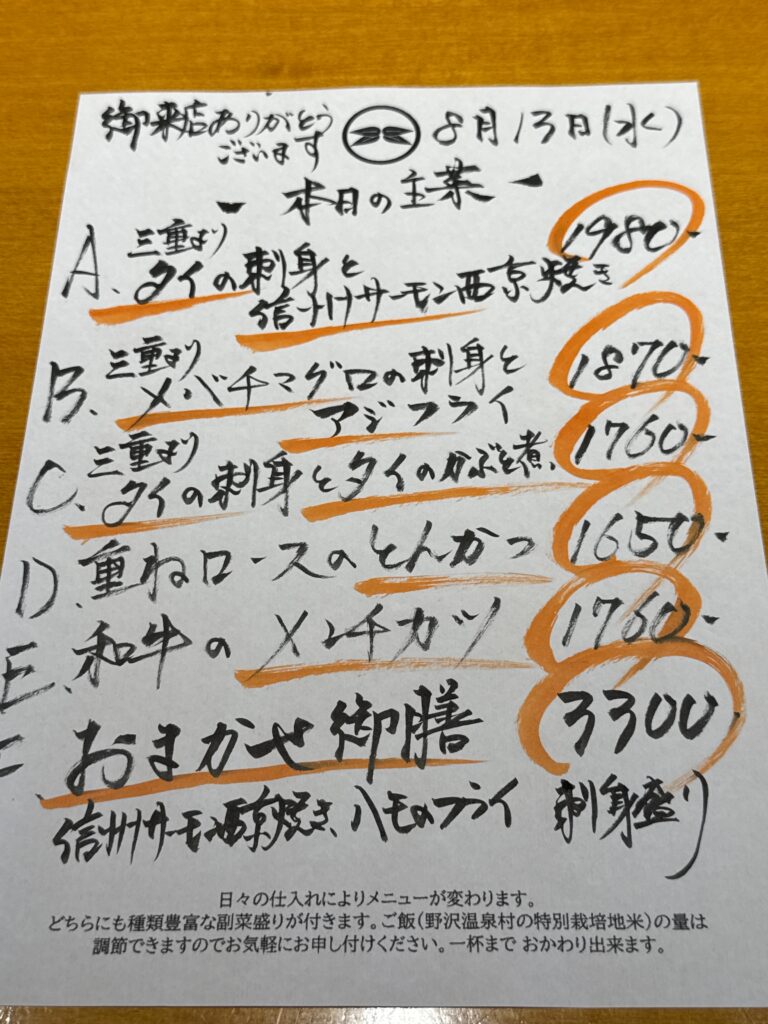 御来店ありがとう
ございます
8月13日(水)
本日の主菜
A、三重より 1980-
タイの刺身と
信州サーモン西京焼き
B、三重より 1870-
メバチマグロの刺身と
アジフライ
C、三重より 1760-
タイの刺身とタイのかぶと煮、
D、重ねロースのとんかつ 1650-
E、和牛のメンチカツ 1760-
F、おまかせ御膳 3300-
信州サーモン西京焼き、ハモのフライ 刺身盛り
日々の仕入れによりメニューが変わります。
どちらにも種類豊富な副菜盛りが付きます。ご飯(野沢温泉村の特別栽培地米)の量は
調節できますのでお気軽にお申し付けください。一杯まで おかわり出来ます。